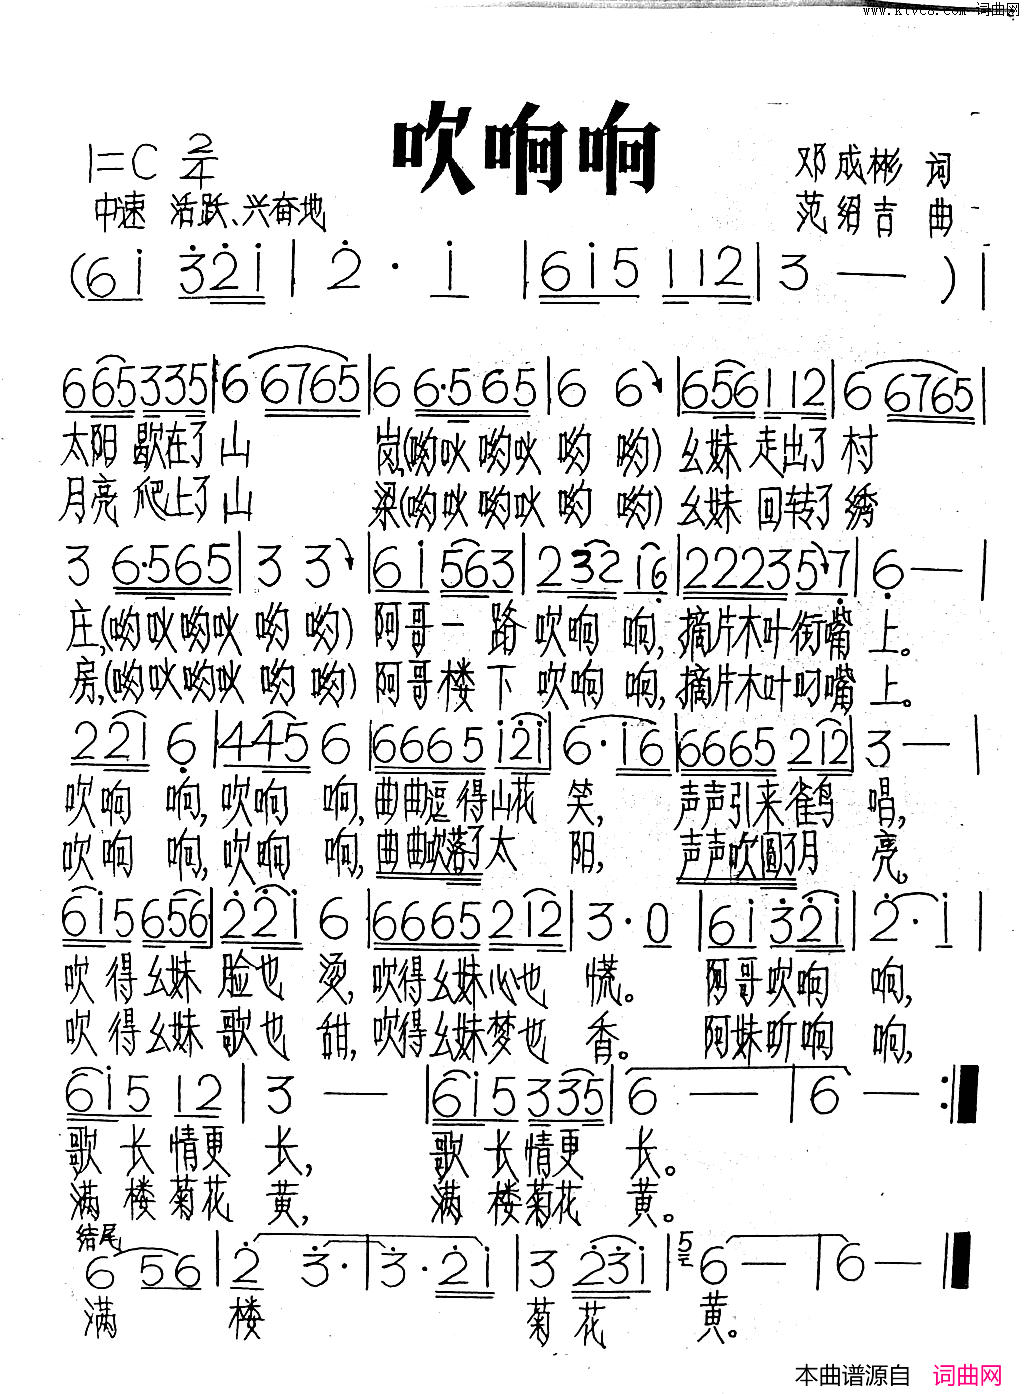 www.ktvc8.com 词曲网
吹响响
1=C 2/4
邓成彬 词
中速 活跃、兴奋地
范绍吉 曲
(6i 32i | 2· i | 6i5 112 | 3 — )|
665335 | 6 6765 | 6 6·565 | 6 6 | 656112 | 6 6765 |
太阳 歇在了山 岗,(哟吙哟吙 哟 哟) 幺妹 走出了村
月亮 爬上了山 梁(哟吙哟吙 哟 哟) 幺妹 回转了绣
3 6·565 | 3 3 | 6i563 | 232 16 | 222357 | 6 — |
庄,(哟吙哟吙 哟 哟) 阿哥一 路 吹响 响, 摘片木叶衔嘴 上。
房,(哟吙哟吙 哟 哟) 阿哥楼 下 吹响 响, 摘片木叶叼嘴 上。
221 6 | 445 6 | 6665 i2i | 6·i6 | 6665 212 | 3 — |
吹响 响, 吹响 响, 曲曲逗得山花 笑, 声声引来雀鸟 唱,
吹响 响, 吹响 响, 曲曲吹落了太 阳, 声声吹圆了月 亮。
6i5656 | 22i 6 | 6665 212 | 3·0 | 6i32i | 2·i |
吹得幺妹 脸也 烫, 吹得幺妹心也 慌。 阿哥吹响 响,
吹得幺妹 歌也 甜, 吹得幺妹梦也 香。 阿妹听响 响,
6i5 12 | 3 — | 6i5335 | 6 — | 6 — :|
歌长情更 长, 歌长情更 长。
满楼菊花 黄, 满楼菊花 黄。
结尾
6 56 | 2 3· | 3·2i | 3 23i | 5 6 — | 6 — |
满 楼 菊花 黄。
本曲谱源自 词曲网